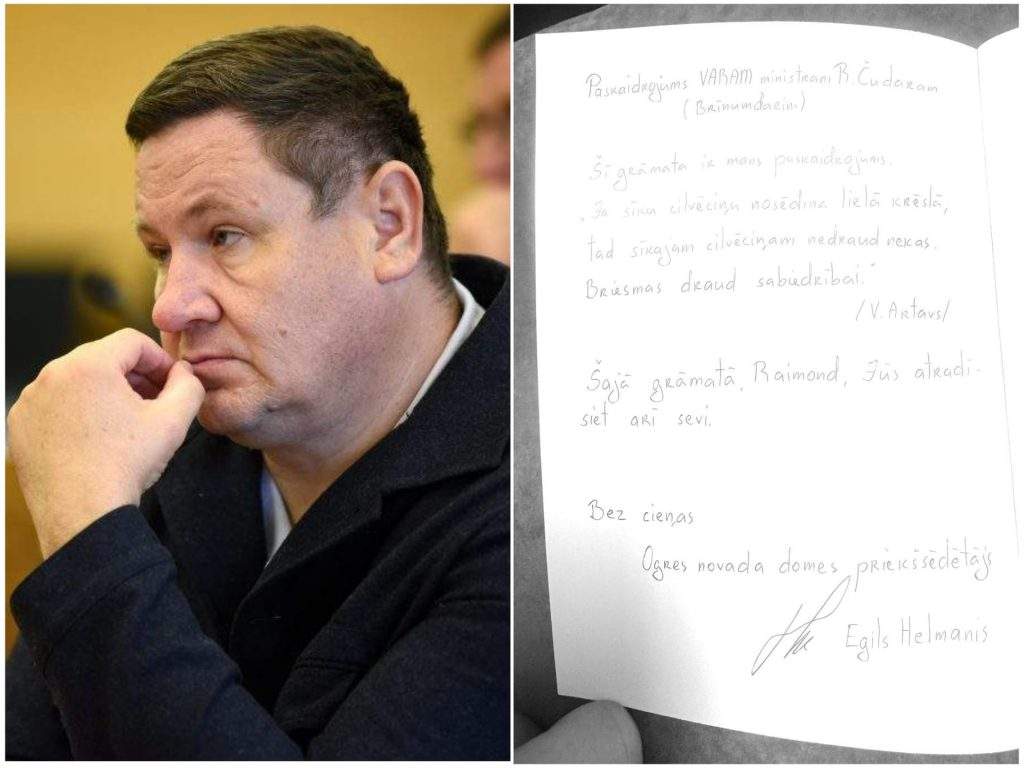 Paskaidrojums VARAM ministram R. Čudaram
(Brīnumdarim)
Šī grāmata ir mans paskaidrojums.
"Ja sīku cilvēciņu nosēdina lielā krēslā,
tad sīkajam cilvēciņam nedraud nekas.
Briesmas draud sabiedrībai."
/V. Artavs/
Šajā grāmatā, Raimond, Jūs atradī-
siet arī sevi.
Bez cieņas
Ogres novada domes priekšsēdētājs
Egils Helmanis